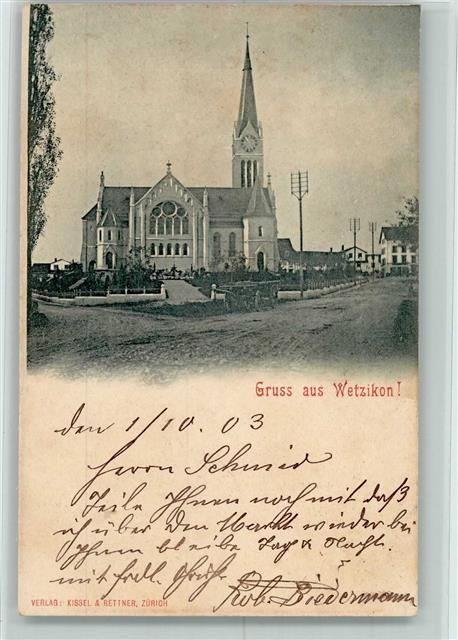 Gruss aus Wetzikon!
den 1/10. 03
Herrn Schmid
Teile Ihnen noch mit daß
ich über den Markt wieder bei
Ihnen bleibe Tag & Nacht.
mit frdl. Grüße
Biedermann
VERLAG: KISSEL & RETTNER, ZÜRICH